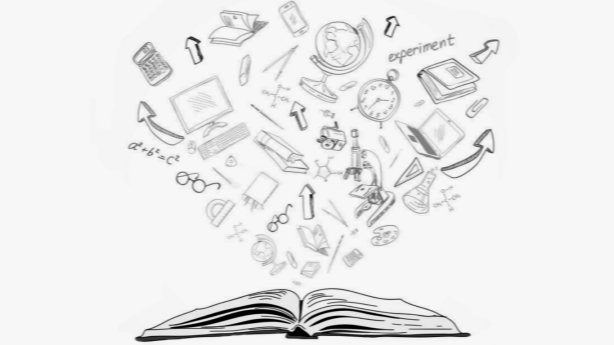 experiment
a²+b²=c²